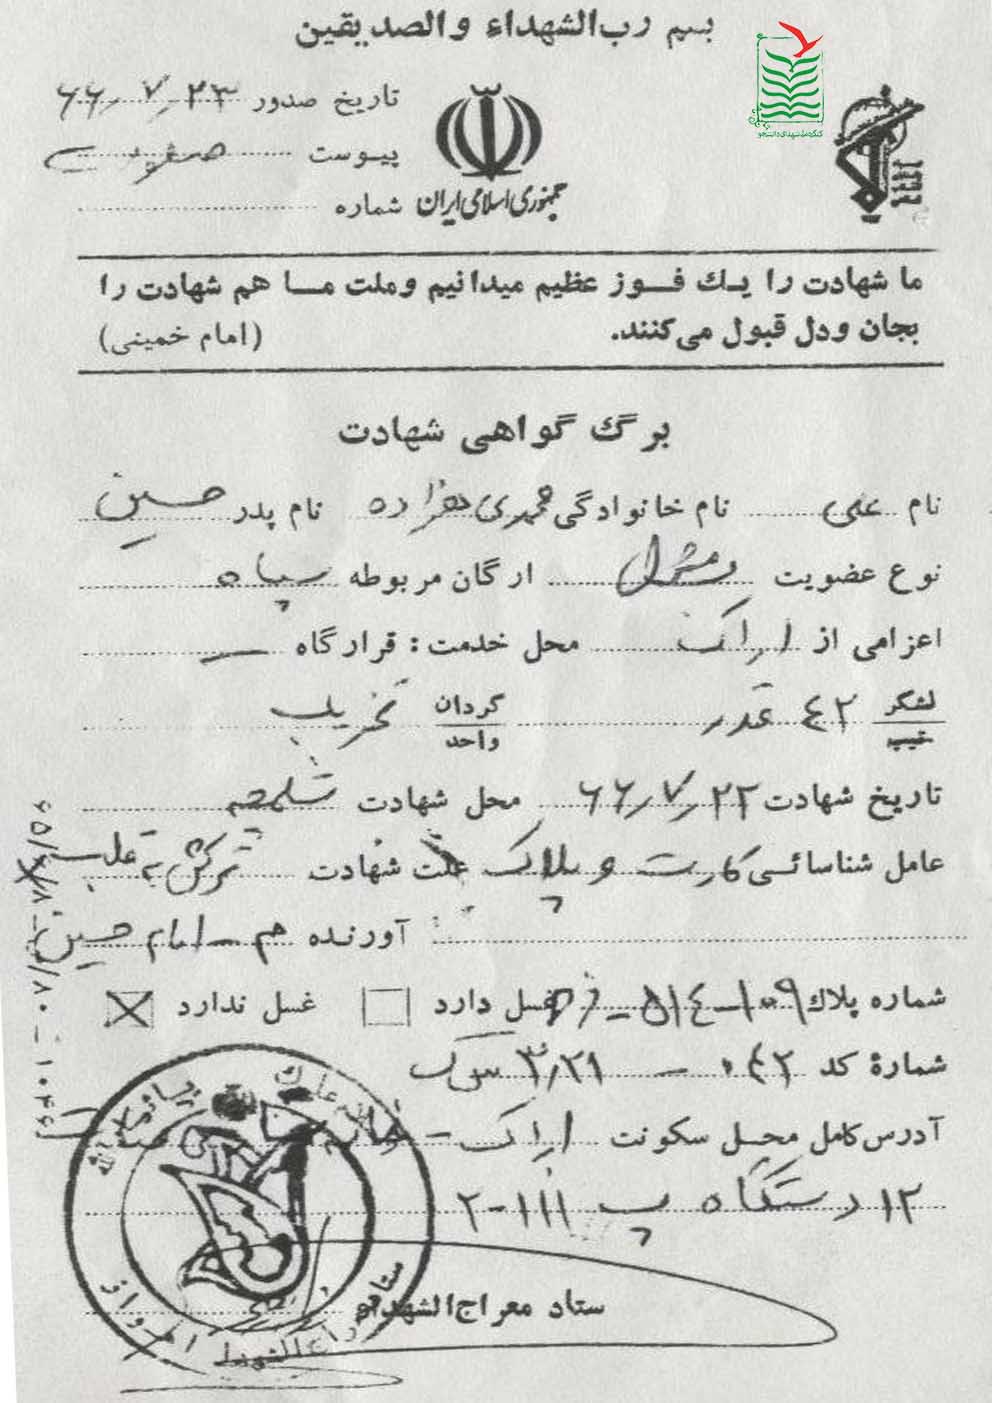 بسم رب‌الشهداء والصدیقین
کنگره ملی شهدای دانشجو
تاریخ صدور ۶۶٫۷٫۲۳
پیوست
جمهوری اسلامی ایران
شماره
ما شهادت را یک فوز عظیم میدانیم وملت ما هم شهادت را
بجان ودل قبول می‌کنند. (امام خمینی)
برگ گواهی شهادت
نام علی نام خانوادگی محمدی هزاره نام پدر حسین
نوع عضویت مشمول ارگان مربوطه سپاه
اعزامی از اراک محل خدمت: قرارگاه ـــ
لشگر ۴۲ قدر گردان تخریب
تیپ واحد
تاریخ شهادت ۶۶٫۷٫۲۲ محل شهادت شلمچه
عامل شناسائی کارت و پلاک علت شهادت ترکش به قلب
آورنده امام حسین
شماره پلاک غسل دارد غسل ندارد
شمارهٔ کد
آدرس کامل محل سکونت اراک –
۱۲ دستگاه پ
ستاد معراج‌الشهداء